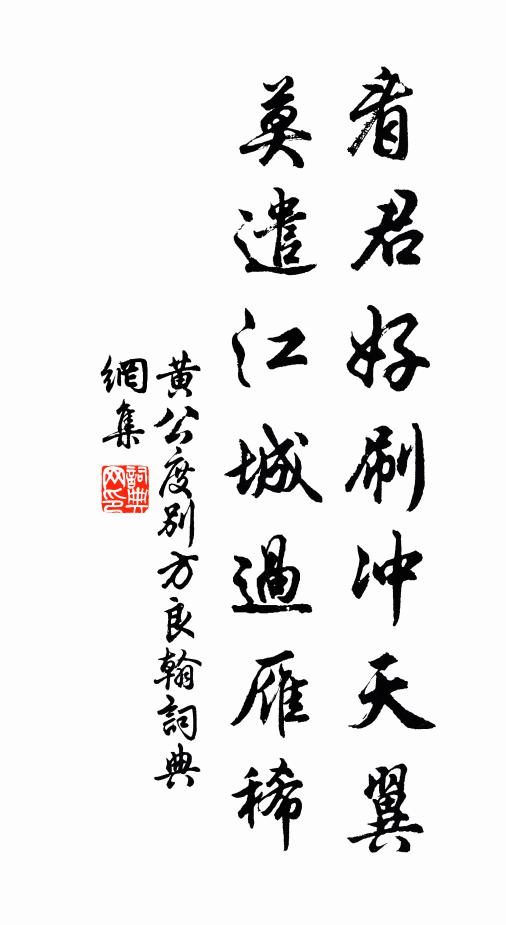 看君好刷冲天翼
莫遣江城過雁稀
黄公度别方良翰詞典
網集
詞典网印